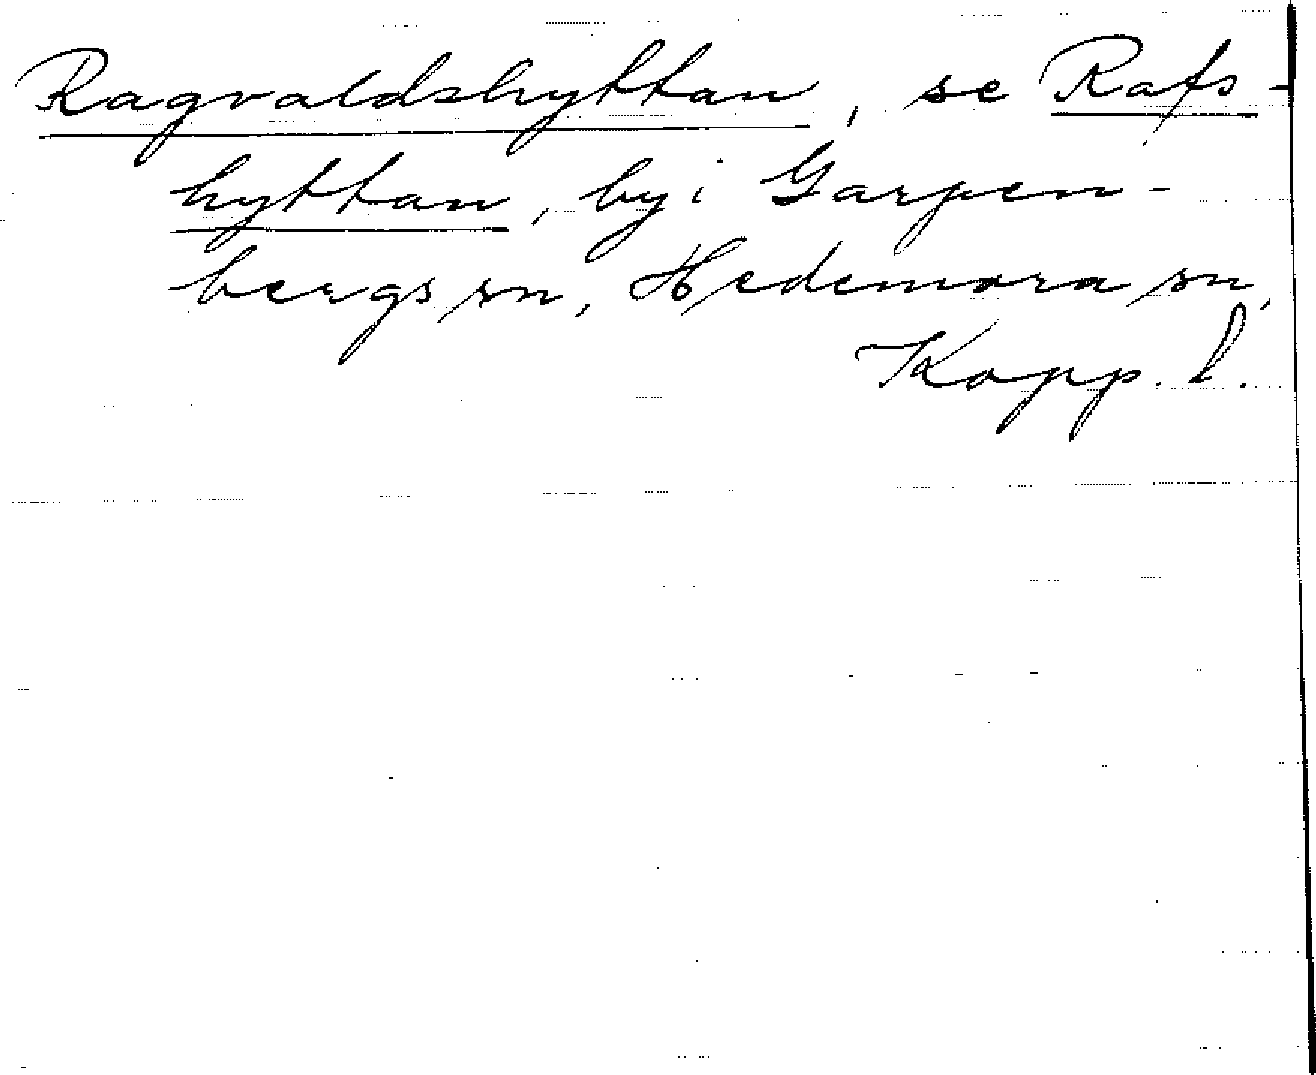 Ragvaldshyttan, se Rafs-
hyttan, by i Garpen-
bergs sn, Hedemora sn,
Kopp. l.